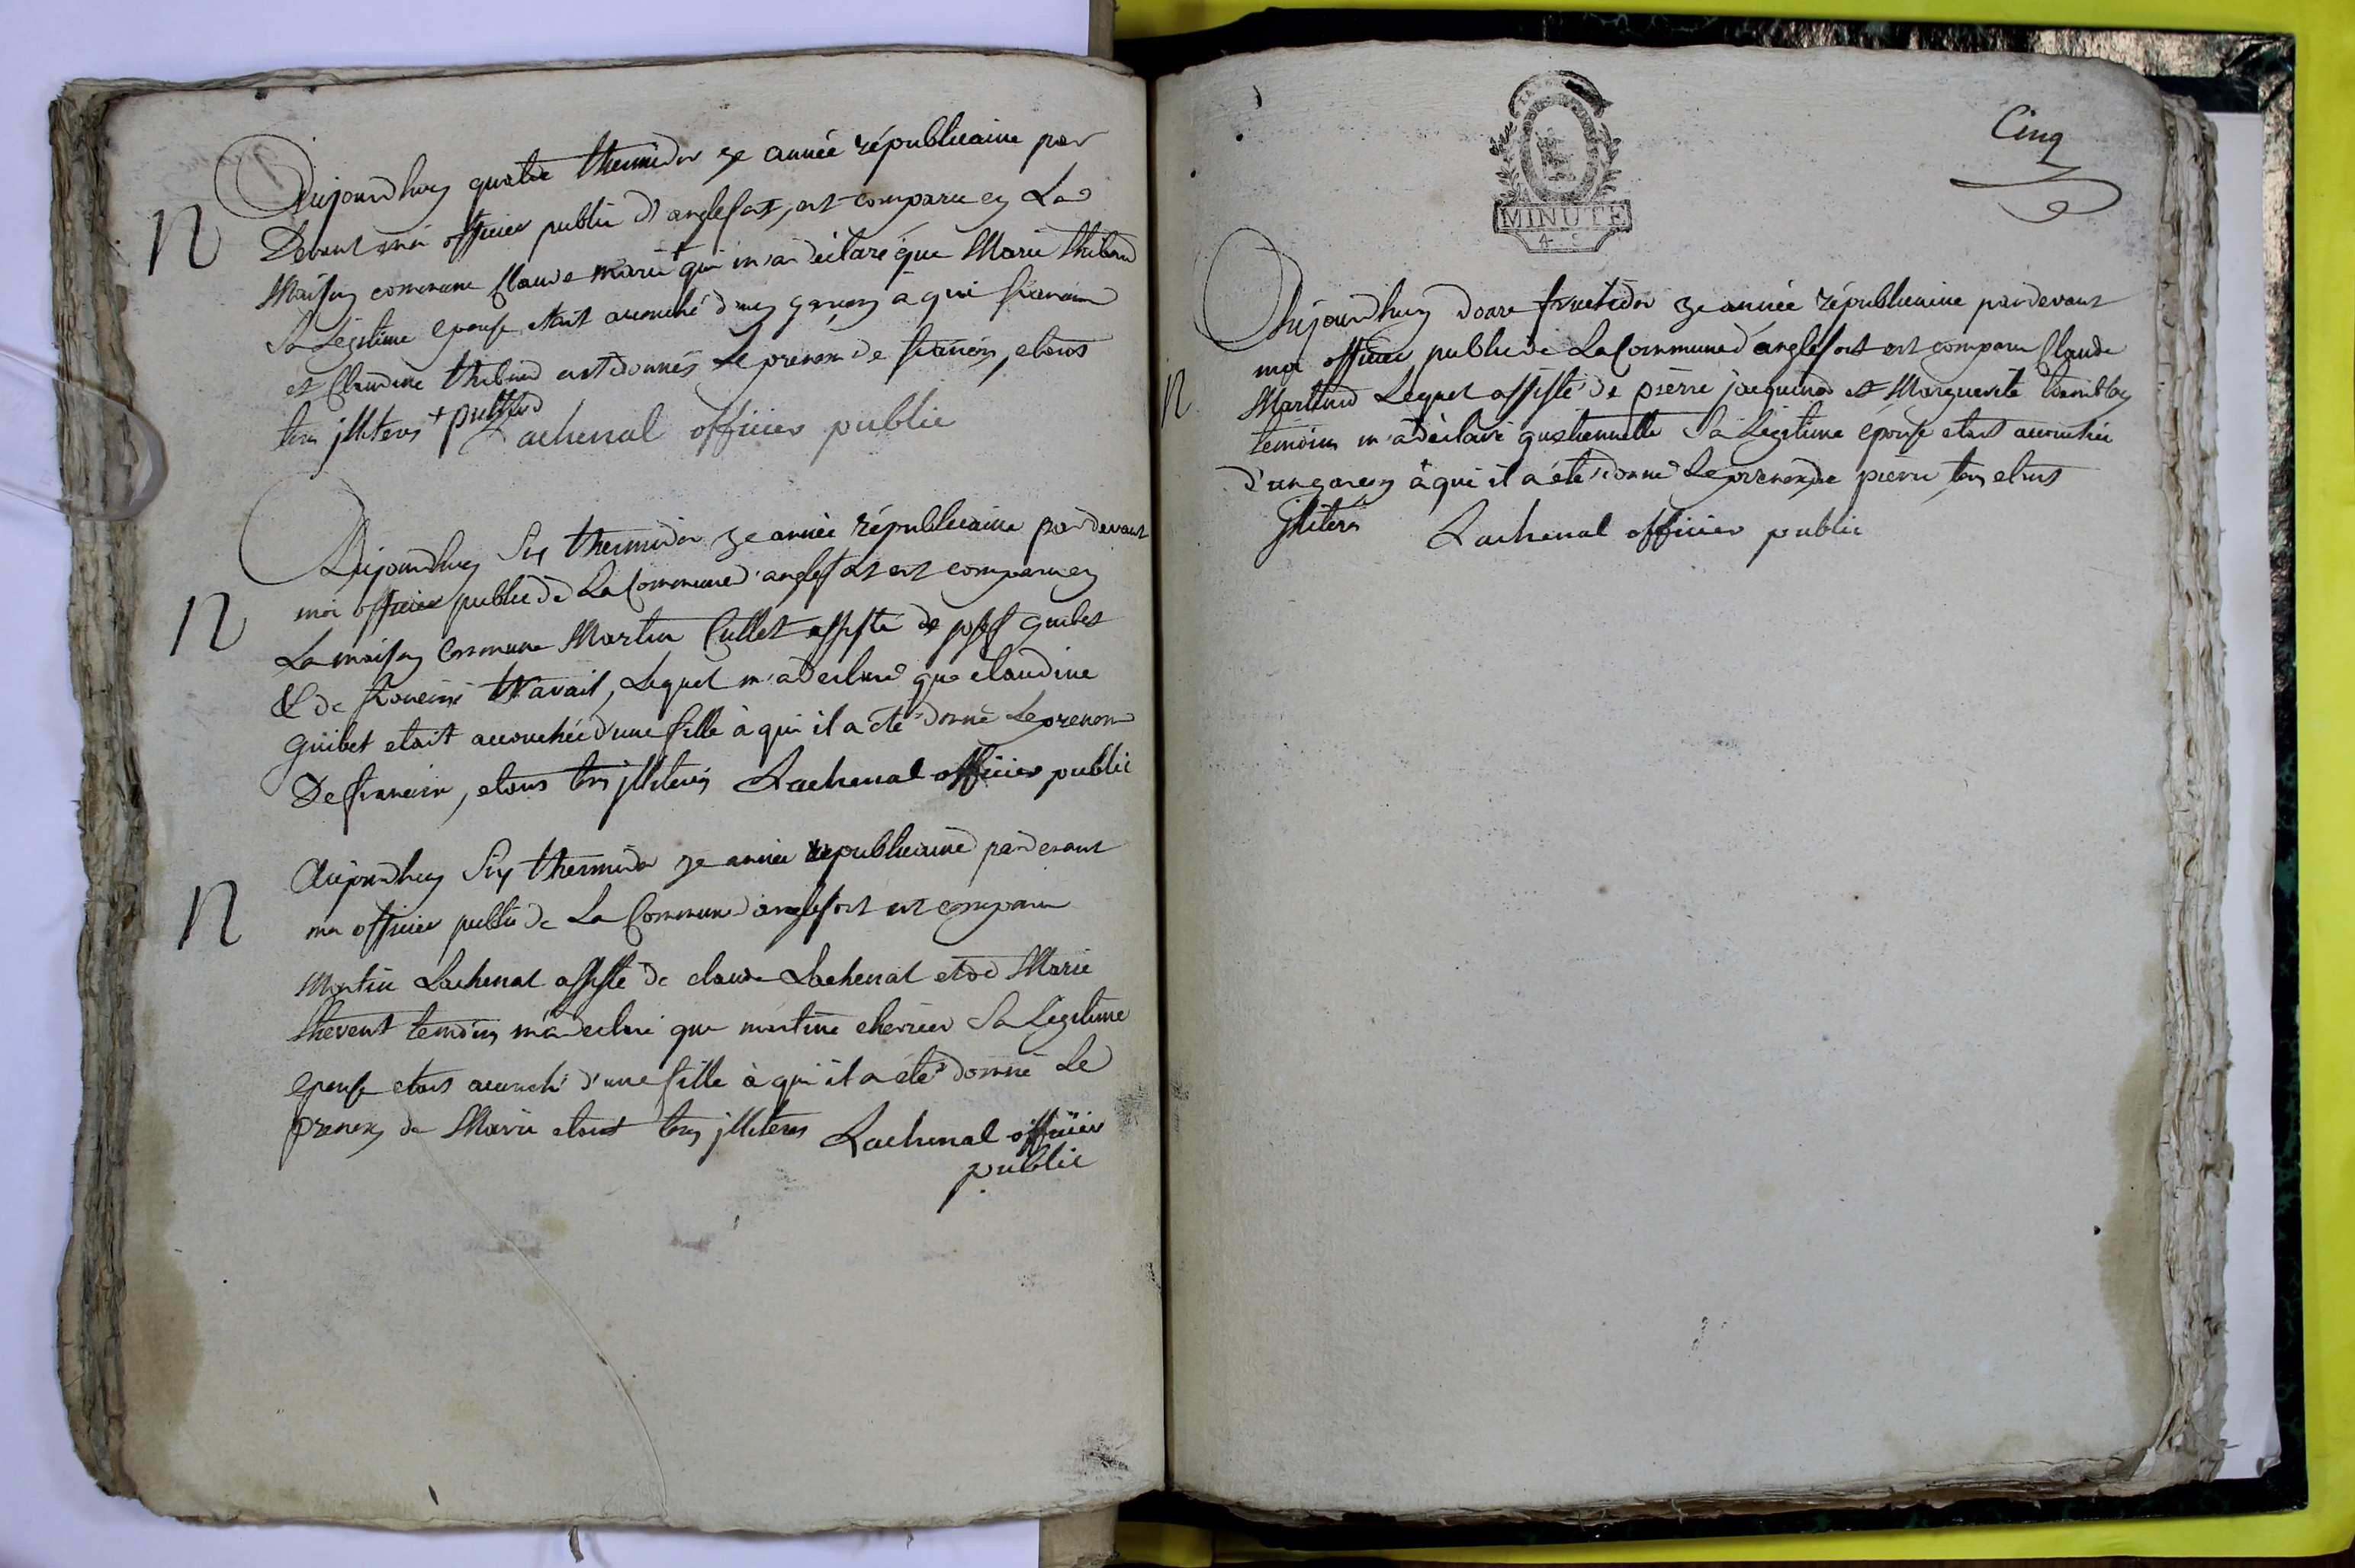 N
Aujourdhuy quatre thermidor 3e année républicaine par
Devant moi officier public d'anglefort, est comparu en La
Maison commune Claude marie + qui m'a déclaré que Marie thibaud
Sa Légitime epouse etait accouché d'un garçon à qui
et Claudine thibaud ont donnés Le prenom de françois, etans
tous jlliteres + pultard
Lachenal officier public
N
Aujourdhuy Six thermidor 3e année républicaine pardevant
moi officier public de La Commune d'anglefort est comparu en
La maison Commune Martin Cullet assisté de josef guibet
& de travail, Lequel m'a declaré que claudine
Guibet etait accouchée d'une fille à qui il a été donné Le prenom
De, etans tous jlliterés Lachenal officier public
N
Aujourdhuy Six thermidor 3e année republicaine pardevant
moi officier public de La Commune d'anglefort est comparu
Martin Lachenal assisté de claude Lachenal et de Marie
thevent temoins m'a declaré que martine cherrier Sa Légitime
epouse etant accouché d'une fille à qui il a été donné Le
prenom de Marie etant tous jlliteres Lachenal officier
public
MINUTE
Cinq
N
Aujourdhuy douze fructidor 3e année républicaine pardevant
moi officier public de La Commune d'anglefort est comparu Claude
Martinod Lequel assisté de pierre jacquinod et Marguerite
temoins m'a déclaré qu'etiennette Sa Légitime épouse etait accouchée
d'un garçon à qui il a été donné Le prenom de pierre tous etans
jlliterés
Lachenal officier public